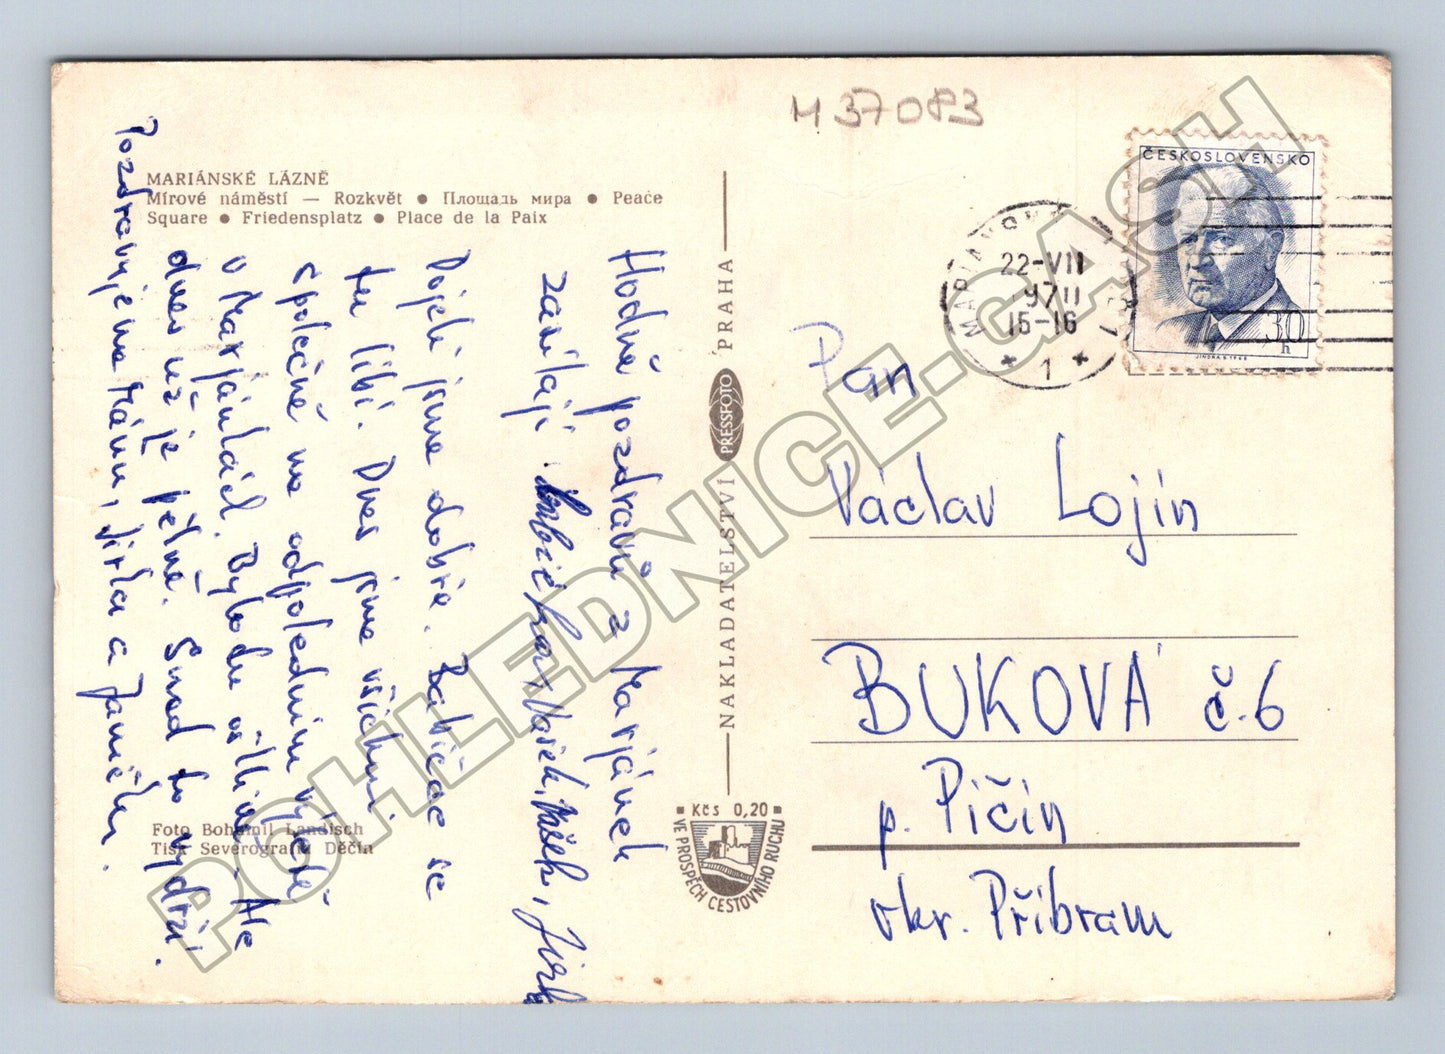 M 37083
MARIÁNSKÉ LÁZNĚ
Mírové náměstí — Rozkvět ● Площадь мира ● Peace
Square ● Friedensplatz ● Place de la Paix
Hodně pozdravů z Marjánek
zasílají Vašek, Jirk
Dojeli jsme dobře. Babičce se
tu líbí. Dnes jsme všichni
společně na odpoledním výletě
v Marjánkách. Bylo du ošklivo. Ale
dnes už je pěkně. Snad to vydrží.
Pozdravujeme Mánu, Jirka a Janičku.
Foto Bohumil Landisch
Tisk Severografia Děčín
NAKLADATELSTVÍ PRESSFOTO PRAHA
Kčs 0,20
VE PROSPĚCH CESTOVNÍHO RUCHU
ČESKOSLOVENSKO
30 h
JINDRA S. 1968
22-VII
15-16
* 1 *
Pan
Václav Lojín
BUKOVÁ č.6
p. Pičín
okr. Příbram
POHLEDNICE-GASH